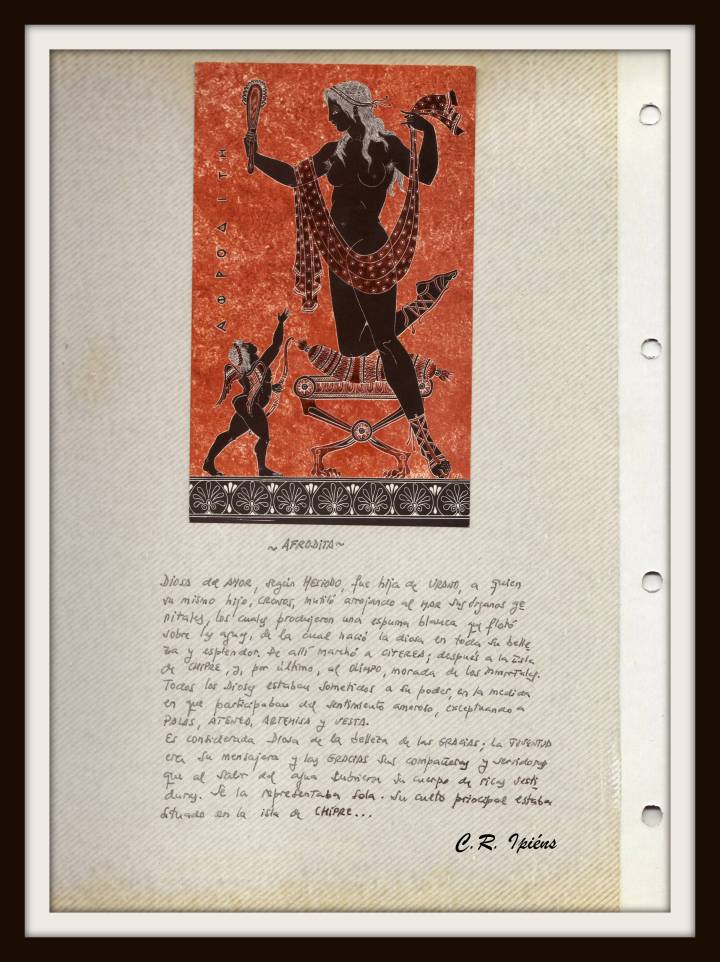 ΑΦΡΟΔΙΤΗ
~ AFRODITA ~
Diosa del AMOR, según HESIODO, fue hija de URANO, a quien
su mismo hijo, CRONOS, mutiló arrojando al MAR sus órganos ge
nitales, los cuales produjeron una espuma blanca que flotó
sobre las aguas, de la cual nació la diosa en toda su belle
za y esplendor. De allí marchó a CITEREA; después a la isla
de CHIPRE, y, por último, al OLIMPO, morada de los Inmortales.
Todos los Dioses estaban sometidos a su poder, en la medida
en que participaban del sentimiento amoroso, exceptuando a
PALAS, ATENEA, ARTEMISA y VESTA.
Es considerada Diosa de la belleza de las GRACIAS; la JUVENTUD
era su mensajera y las GRACIAS sus compañeras y servidoras
que al salir del agua cubrieron su cuerpo de ricas vesti
duras. Se la representaba sola. Su culto principal estaba
situado en la isla de CHIPRE...
C.R. Ipiéns